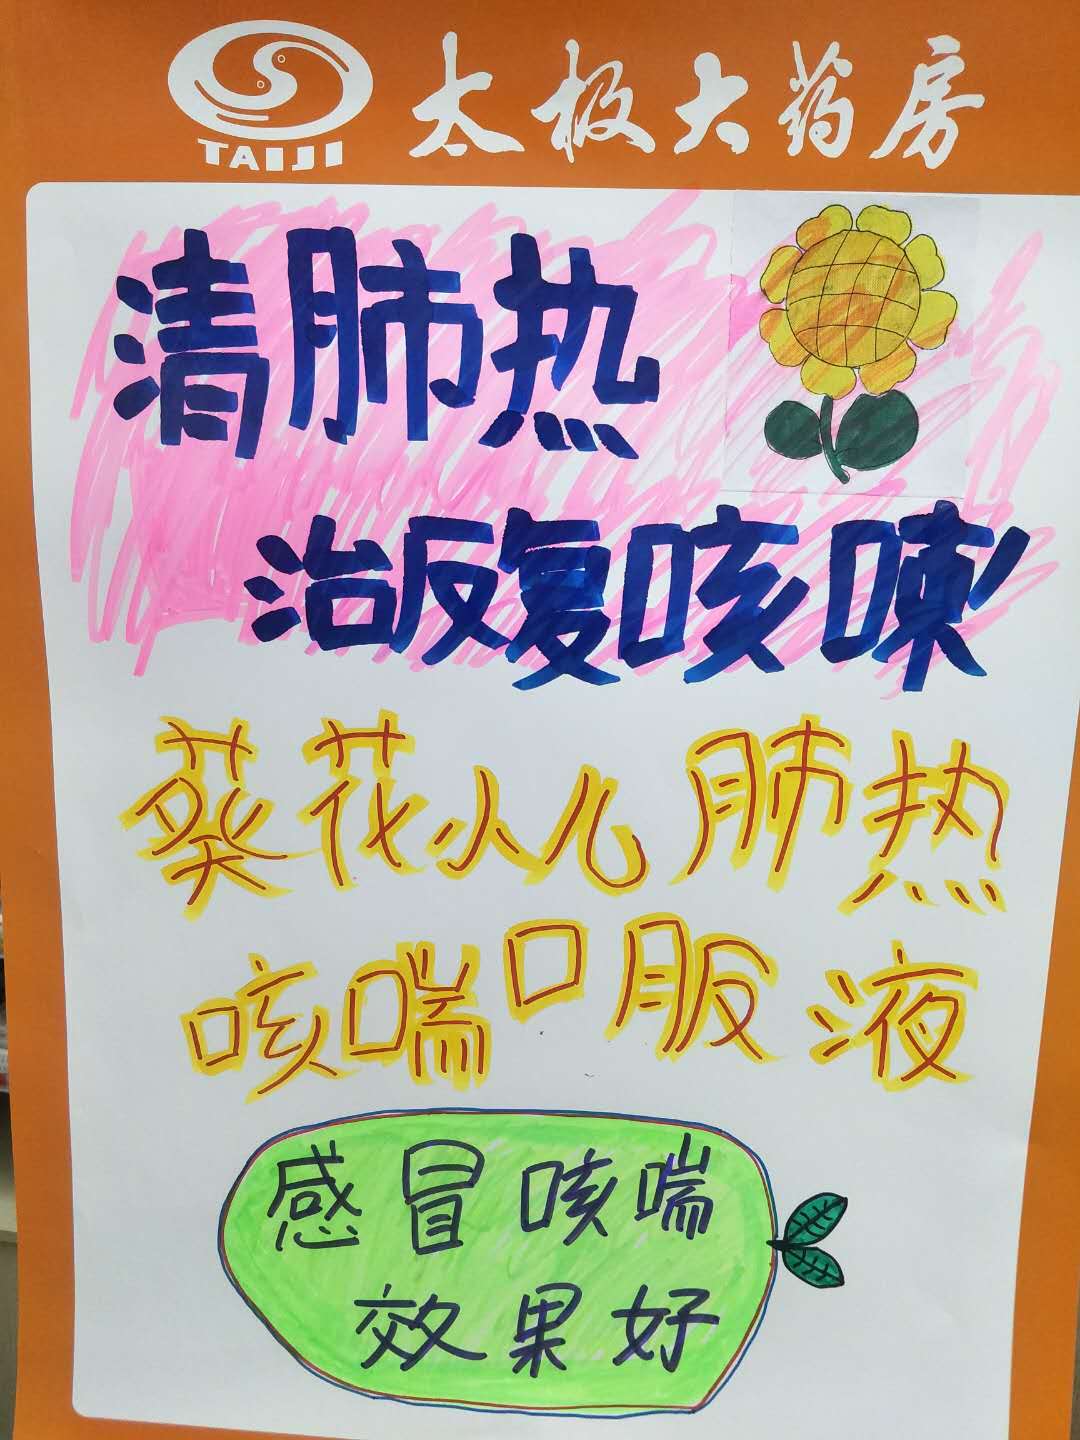 TAIJI 太极大药房
清肺热
治反复咳嗽
葵花小儿肺热
咳喘口服液
感冒咳喘
效果好